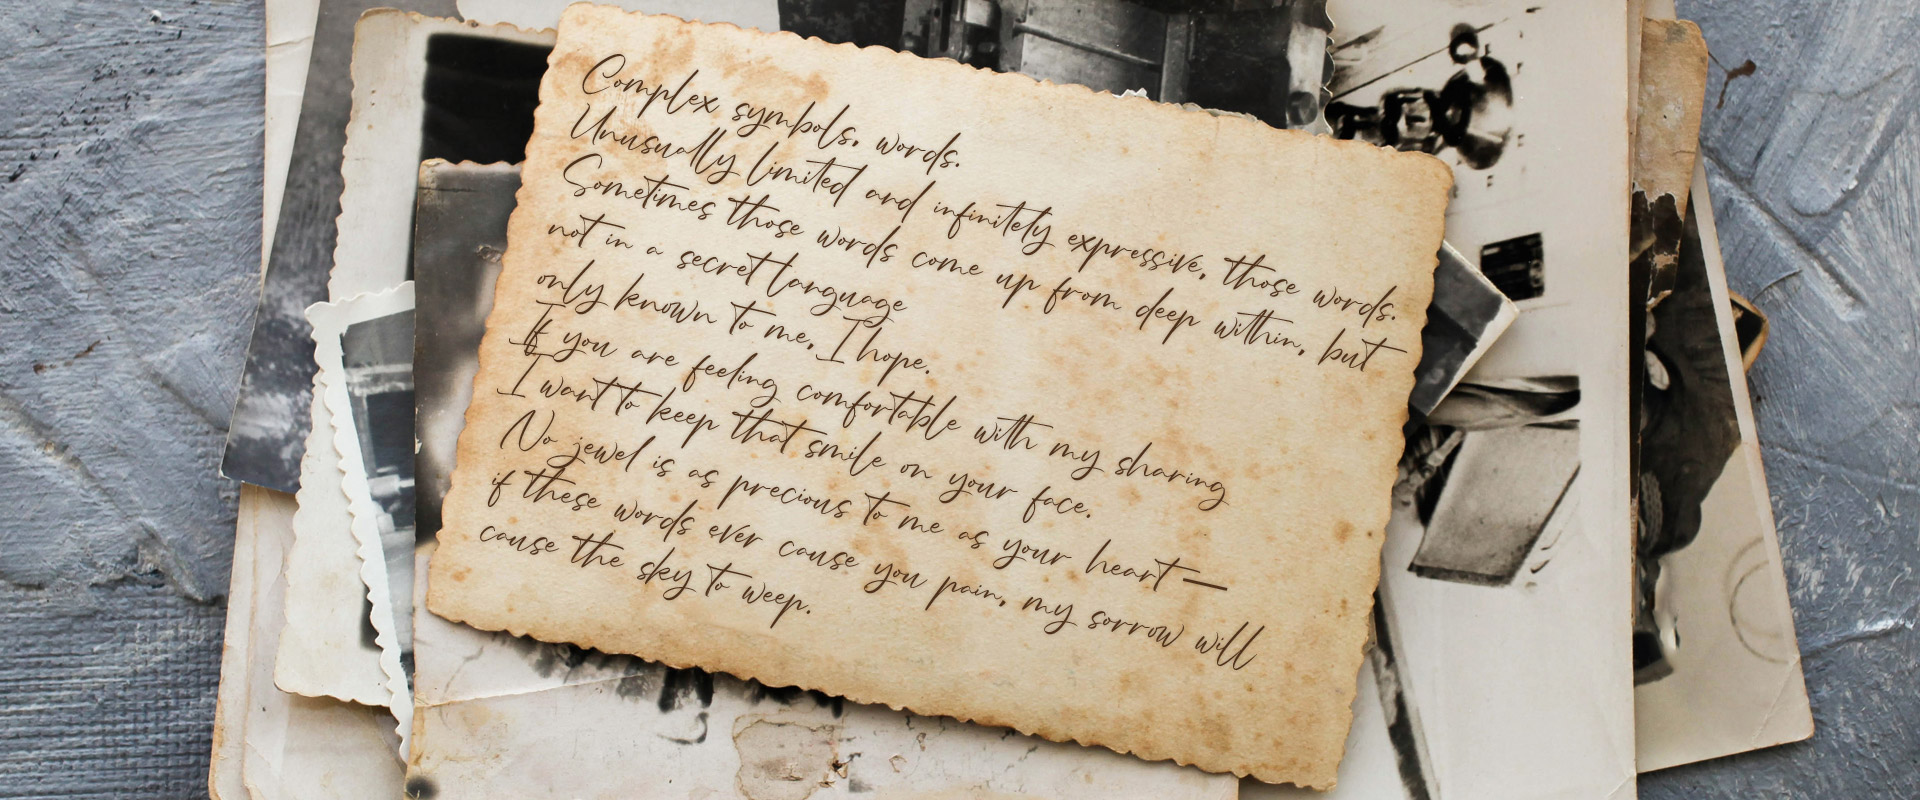 Complex symbols, words.
Unusually limited and infinitely expressive, those words.
Sometimes those words come up from deep within, but
not in a secret language
only known to me, I hope.
If you are feeling comfortable with my sharing
I want to keep that smile on your face.
No jewel is as precious to me as your heart —
if these words ever cause you pain, my sorrow will
cause the sky to weep.